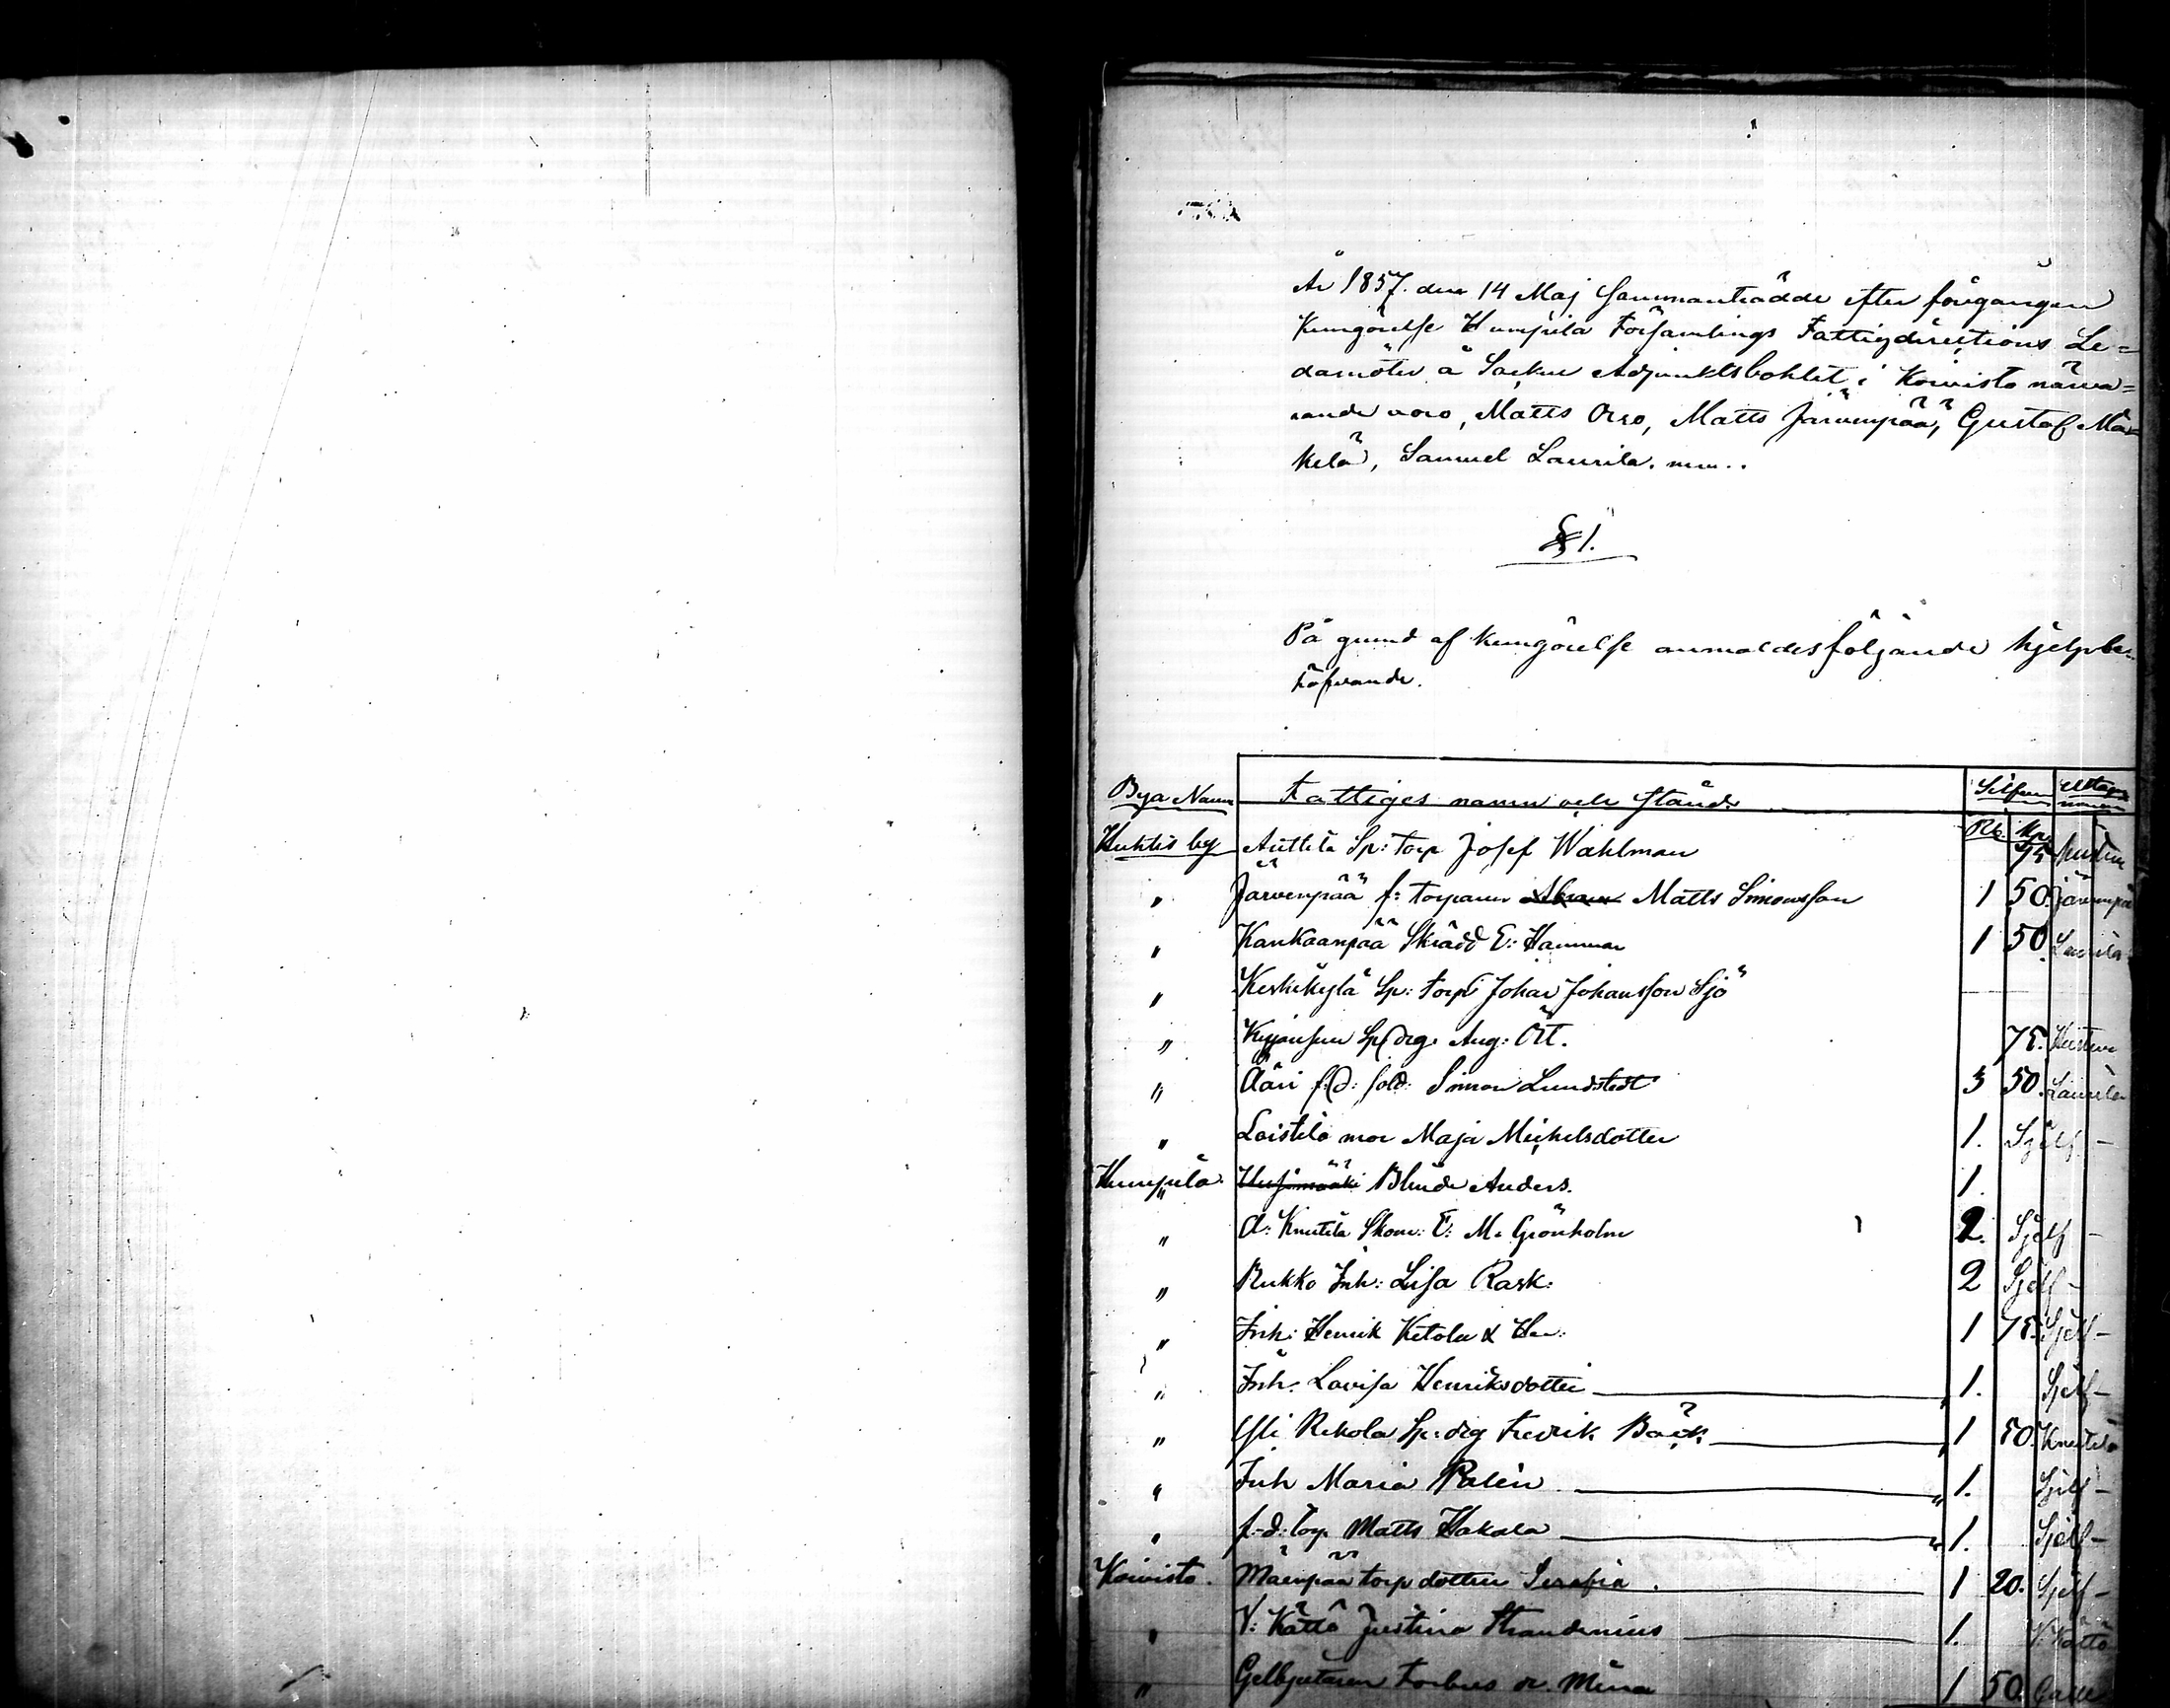 År 1857. den 14 Maj sammanträdde efter föregången
Kungörelse Humpila Församlings Fattigdirections Le=
damöter å Sockne Adjunktsbohlet i Koivisto närva=
rande voro, Matts Orso, Matts Järvenpää, Gustaf Mä=
kelä, Samuel Laurila. m.m..
§ 1.
På grund af kungörelse anmäldes följande hjelpbe-
höfvande.
Bya Namn Fattiges namn och stånd. Silfver Uttag
Rb. Kp.
Huhtis by Anttila Sp: torp Josef Wahlman 75
" Järvenpää f: torparen Matts Simonsson 1 50. Järvenpää
" Kankaanpää Skrädd E: Hammar 1 50. Laurila
" Keskikylä Sp: torp Johan Johansson Sjö
" Sp drg. Aug: Ört. 75.
" Ääri f.d: sold: Simon Lundstedt 3 50. Laurila
" Loistila mor Maja Michelsdotter 1. Sjelf -
Humpila " Blinde Anders. 1.
" A: Knutila Skom: E: M. Grönholm 2. Sjelf -
" Rukko Inh: Lisa Rask: 2 Sjelf -
" Inh: Henrik Ketola & 1 75. Sjelf -
" Inh. Lovisa Henriksdotter " 1. Sjelf -
" Yli Rekola Sp: drg Fredrik Bäck " 1 50. Knutila
" Inh Maria Palén " 1. Sjelf -
" f-d: torp. Matts Hakala " 1. Sjelf -
Koivisto. Mäenpää torp dotter Serafia. 1 20. Sjelf -
" Y: Kättö Justina Strandenius 1. Y: Kättö
" Gelbgjutaren Forbus dr. Mina 1 50